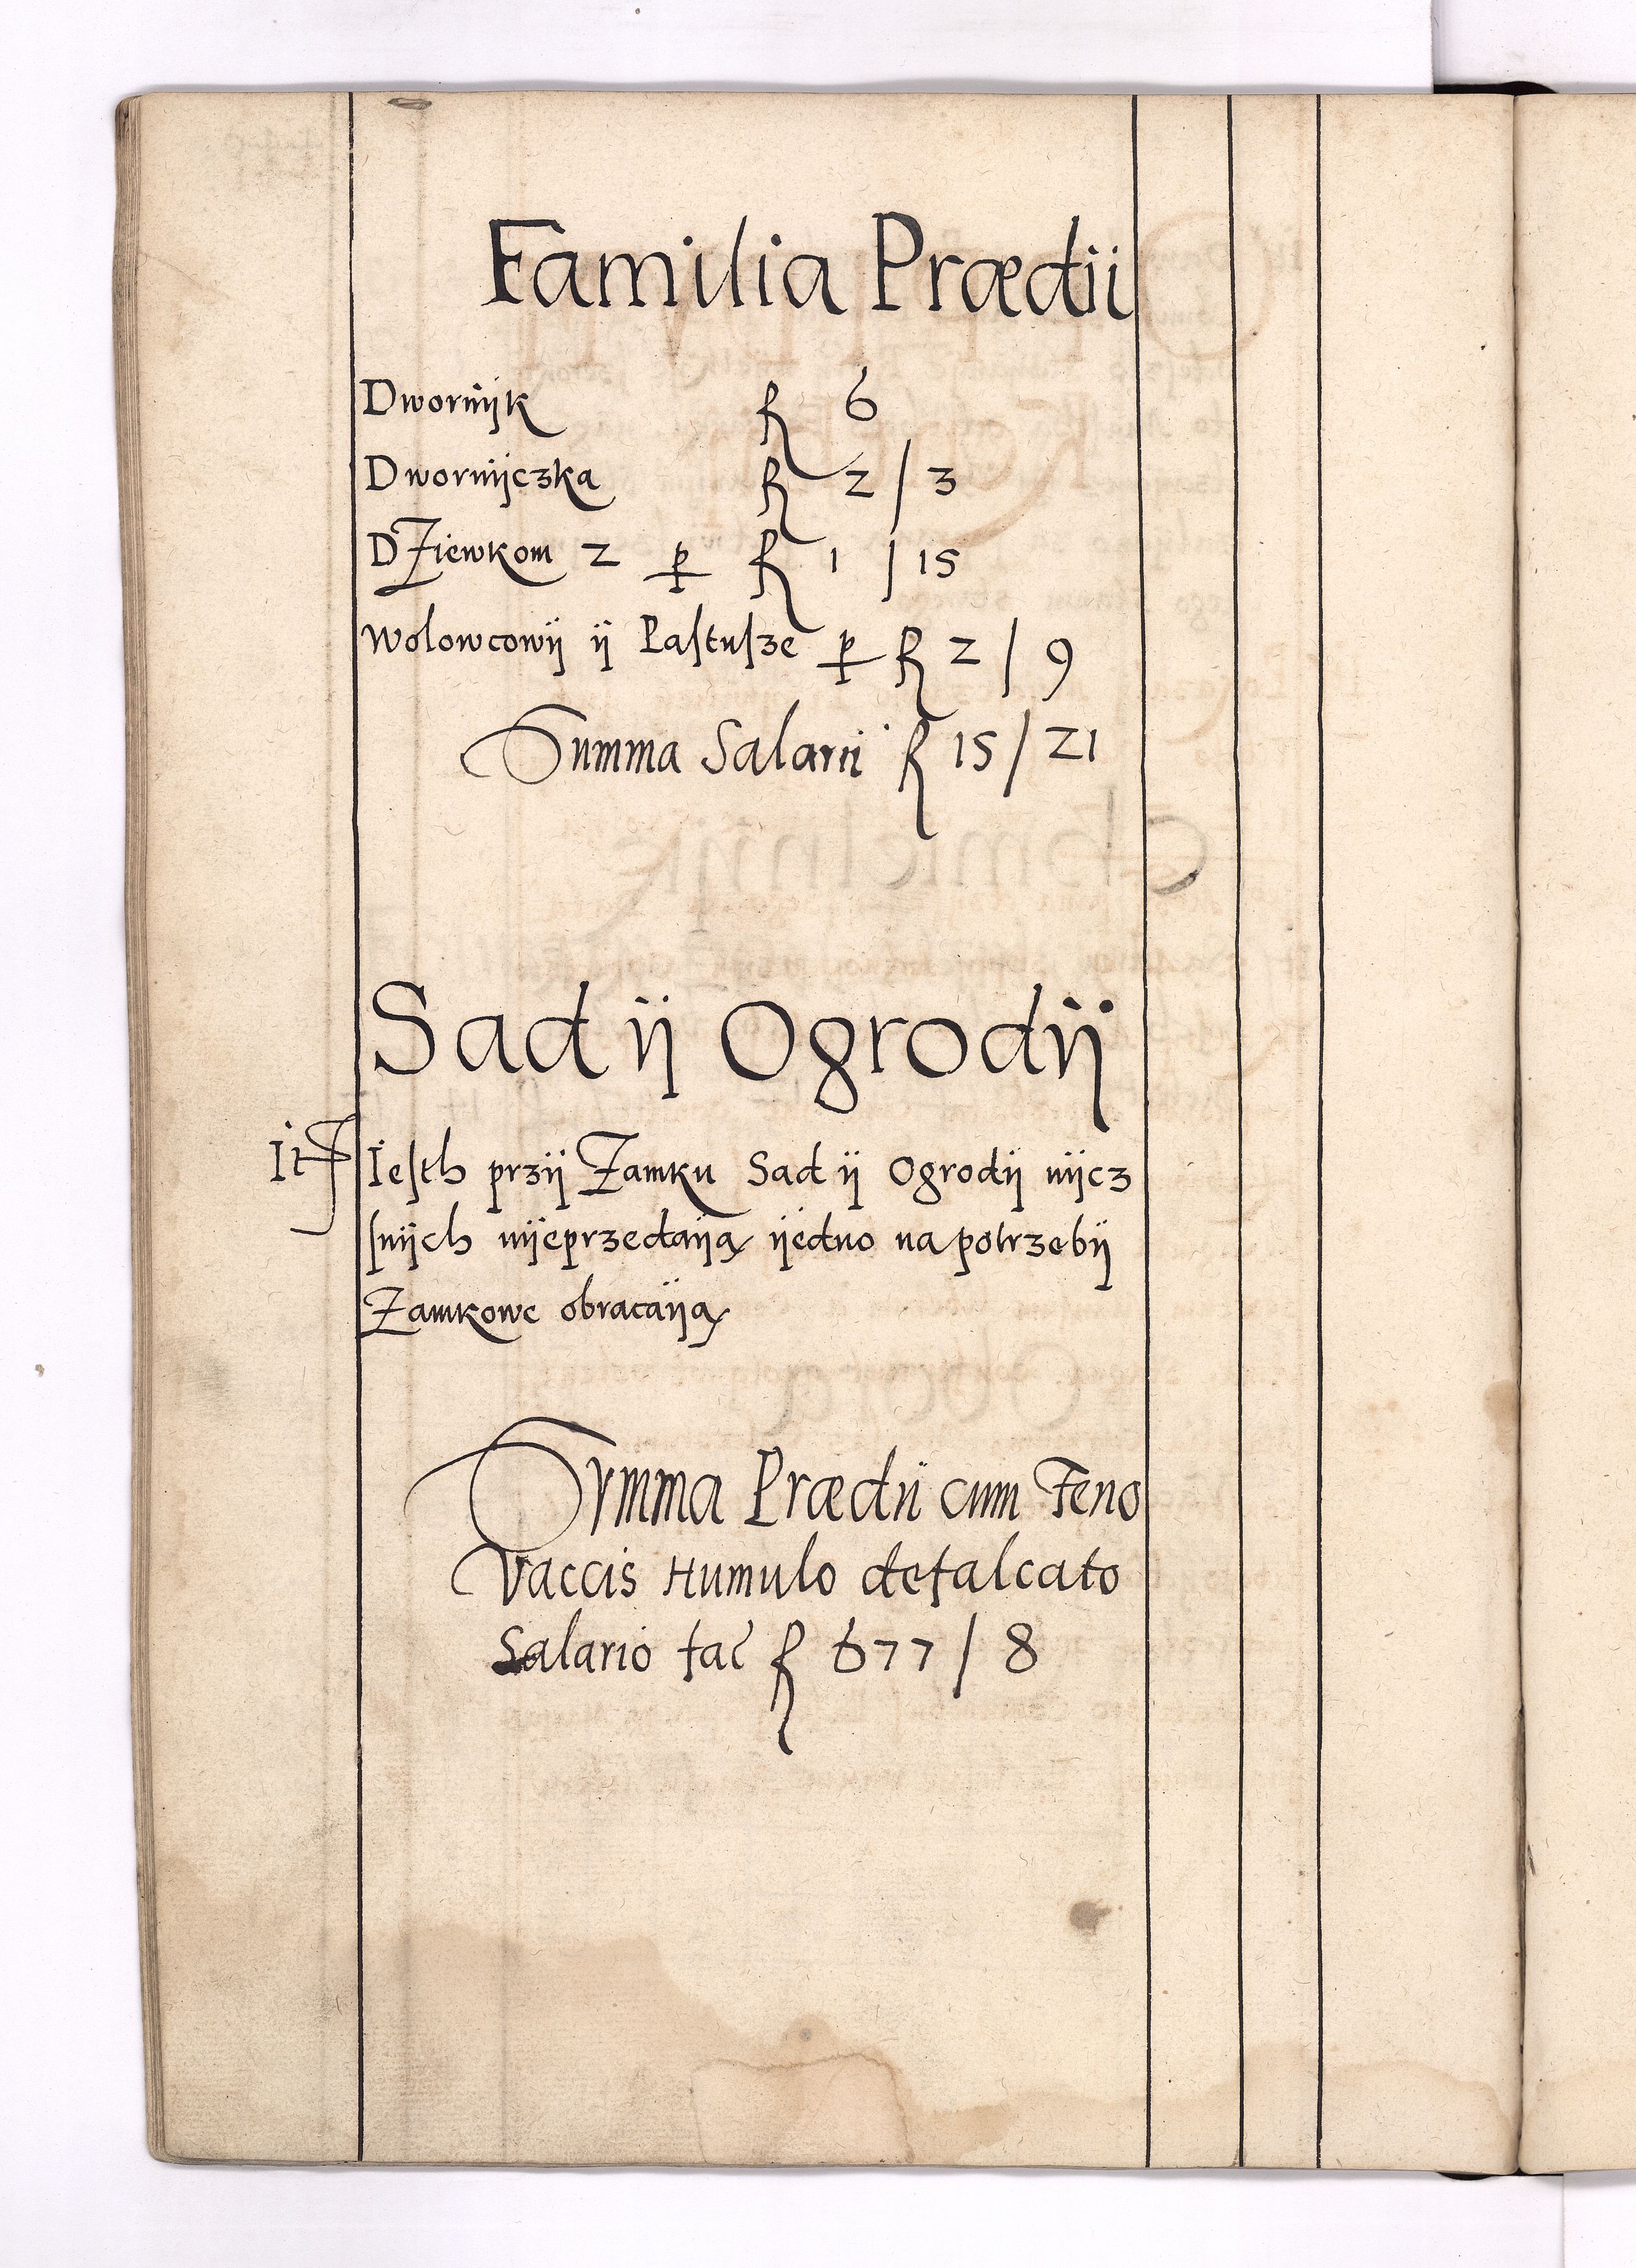 Familia Prædii
Dwornijk f 6
Dwornijczka f 2 / 3
Dziewkom 2 p f 1 / 15
Wolowcowij ij Pastusze p f 2 / 9
Summa Salarii f 15 / 21
Sad ij Ogrodij
It Iesth przij Zamku Sad ij Ogrodij nijcz
snijch nijeprzedaiją ijedno na potrzebij
Zamkowe obracaiją
Summa Prædii cum Feno
Vaccis Humulo defalcato
Salario fac f 677 / 8